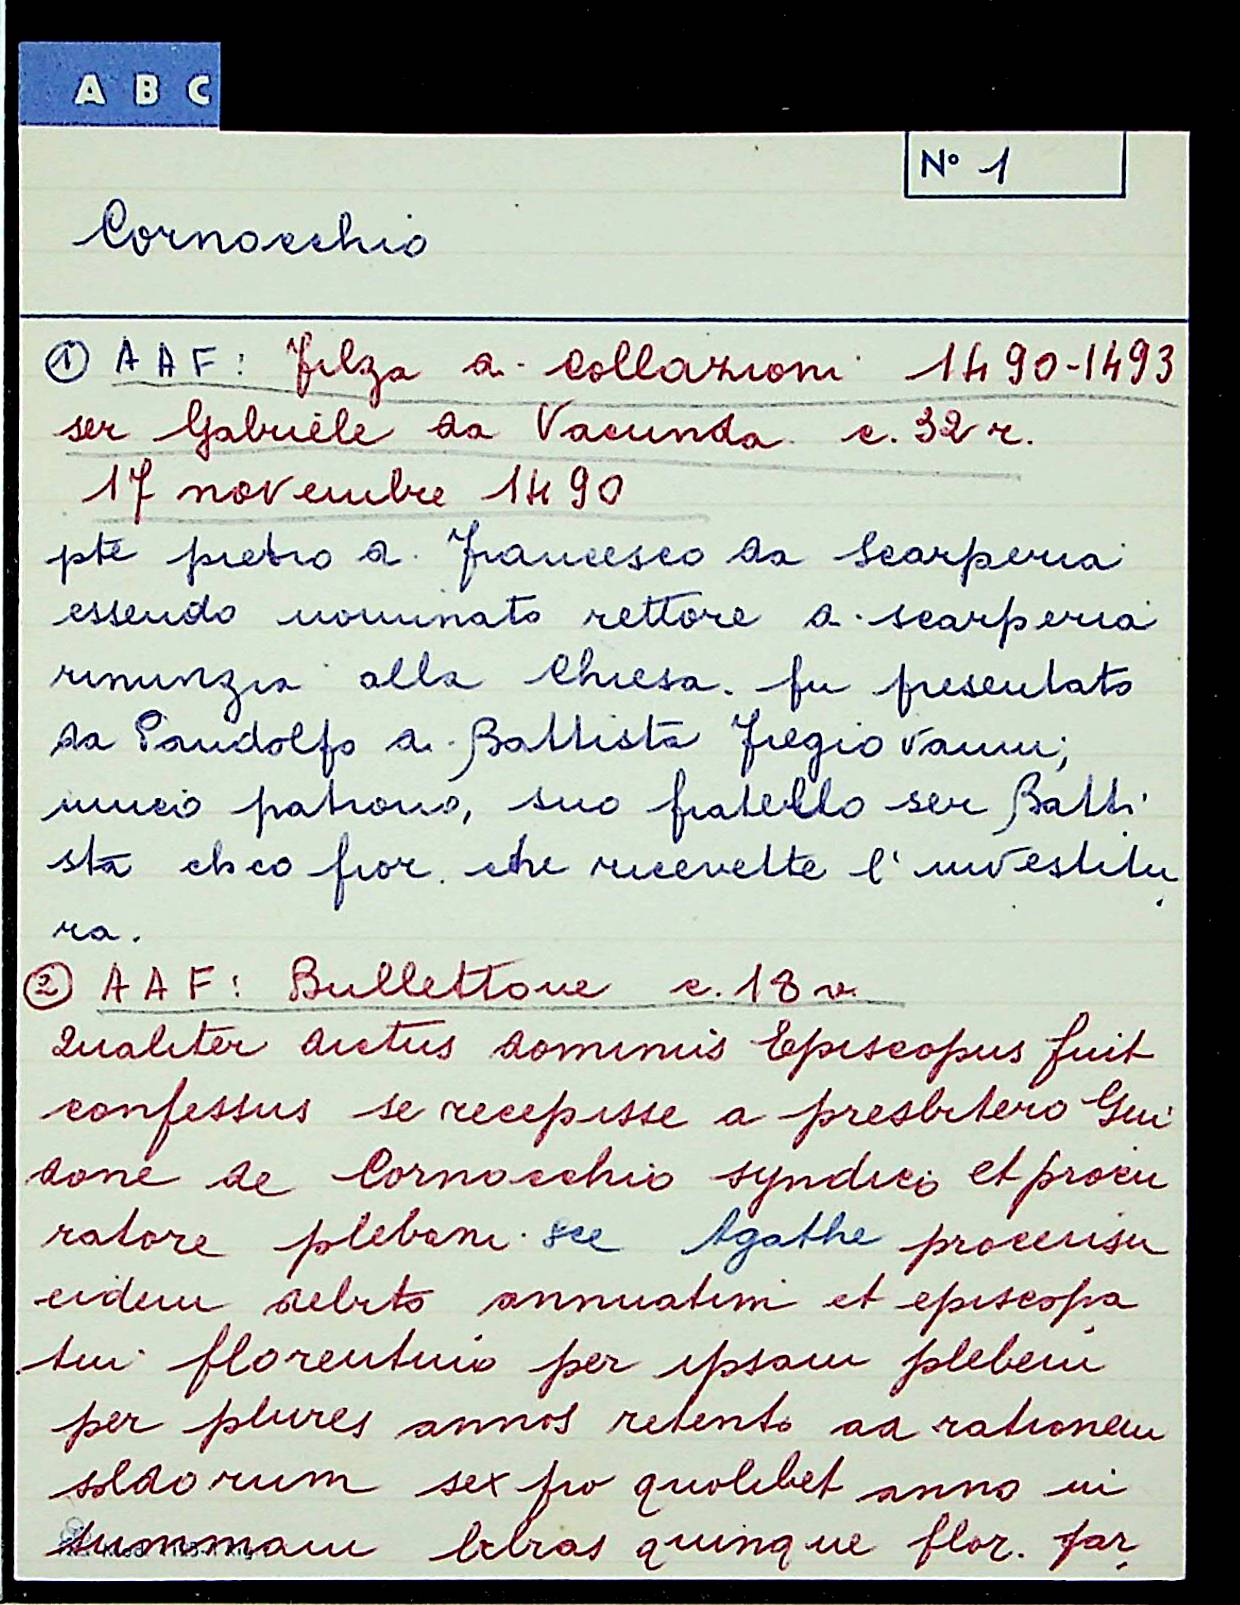 A B C
Nº 1
Cornocchio
① A A F: Filza di collazioni 1490-1493
ser Gabriele da Vacunda c. 32 r.
17 novembre 1490
pte pietro di Francesco da Scarperia
essendo nominato rettore di scarperia
rinunzia alla Chiesa. fu presentato
da Pandolfo di Battista Fregiovanni;
unico patrono, suo fratello ser Batti
sta ch co fior. che ricevette l'investitu
ra.
② A A F: Bullettone c. 18 v.
Qualiter dictus dominus Episcopus fuit
confessus se recepisse a presbitero Gui
done de Cornocchio syndico et procu
ratore plebani sce Agathe pro censu
eidem debito annuatim et episcopa
tui florentino per ipsam plebem
per plures annos retento ad rationem
soldorum sex pro quolibet anno in
summam libras quinque flor. par